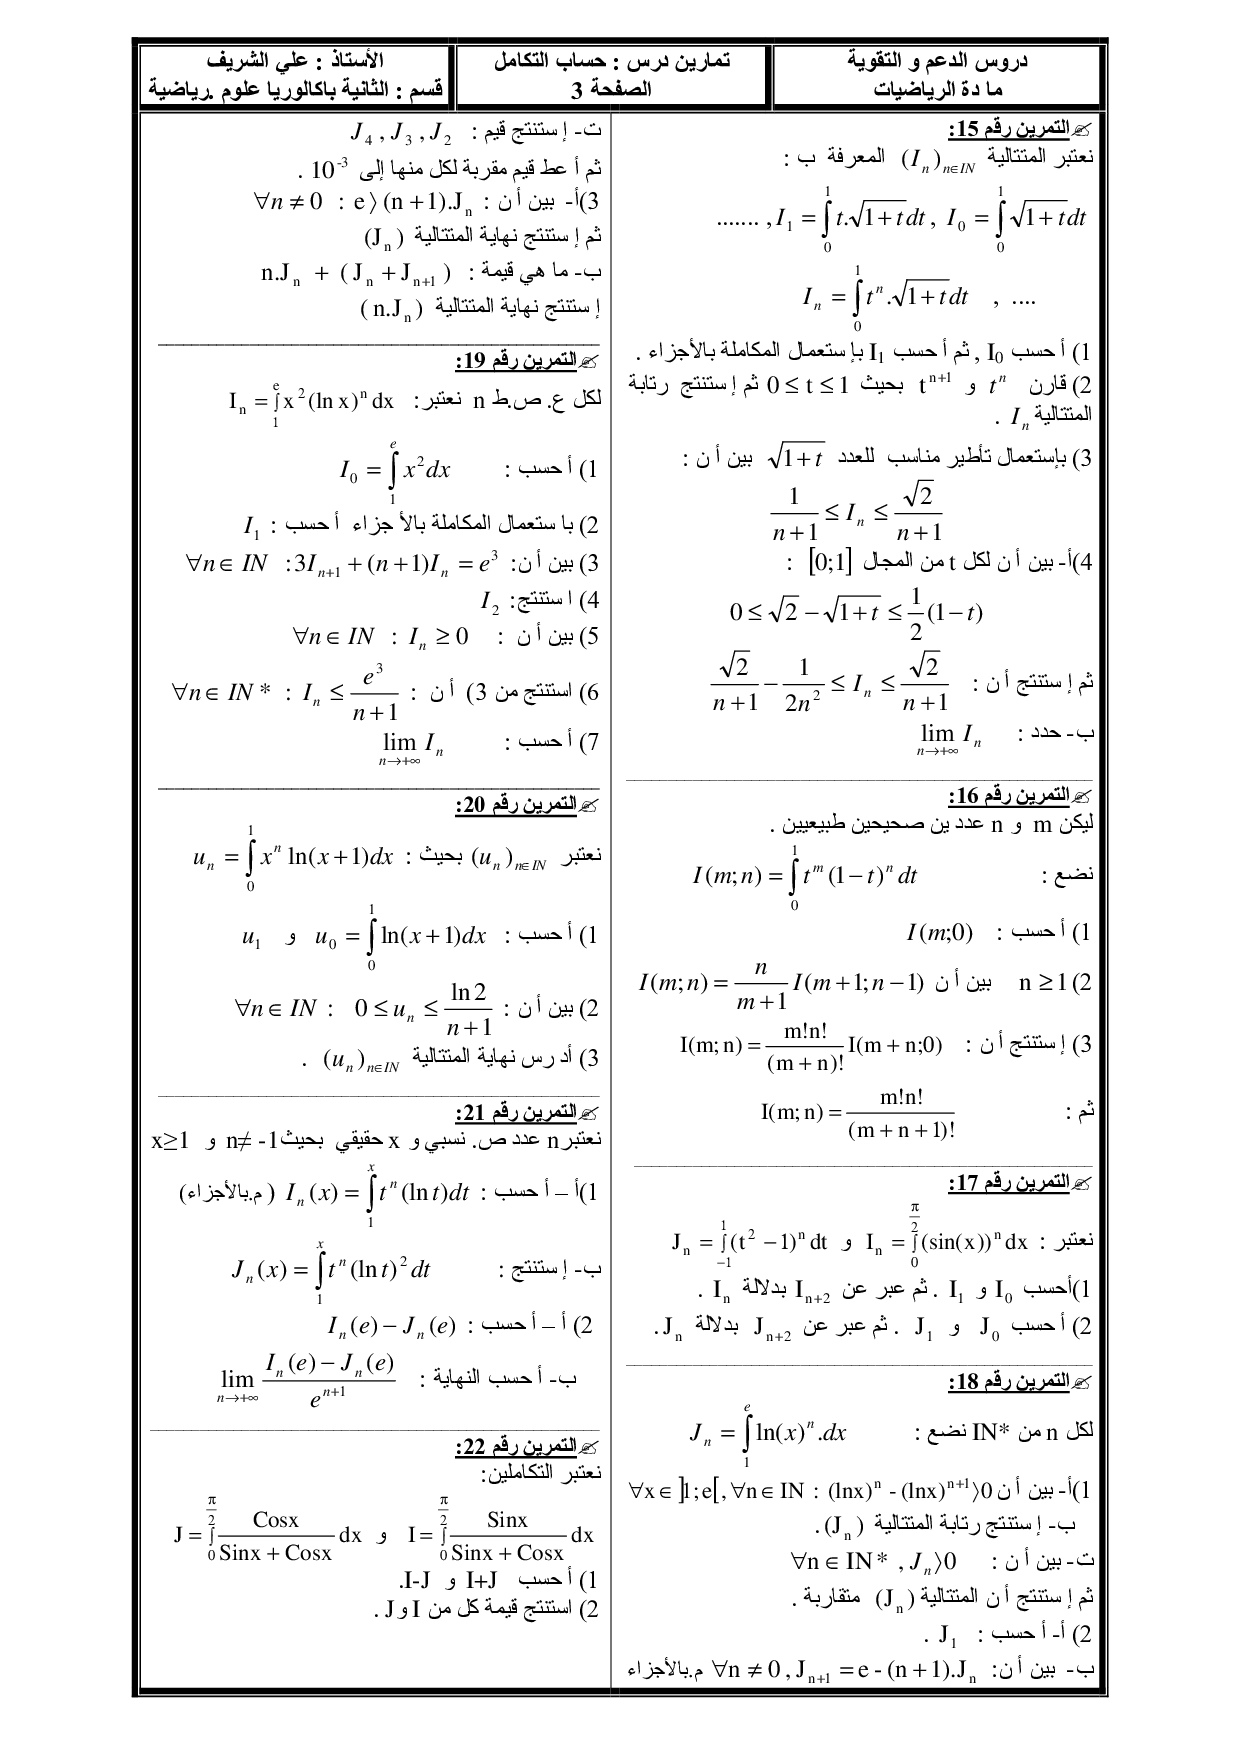 دروس الدعم و التقوية
ما دة الرياضيات
تمارين درس : حساب التكامل
الصفحة 3
الأستاذ : علي الشريف
قسم : الثانية باكالوريا علوم .رياضية
التمرين رقم 15:
نعتبر المتتالية (I_n)_{n∈IN} المعرفة ب :
I_0 = ∫_0^1 √(1+t) dt , I_1 = ∫_0^1 t.√(1+t) dt , .......
I_n = ∫_0^1 t^n.√(1+t) dt , ....
1) أحسب I_0 , ثم أحسب I_1 بإستعمال المكاملة بالأجزاء .
2) قارن t^n و t^{n+1} بحيث 0 ≤ t ≤ 1 ثم إستنتج رتابة
المتتالية I_n .
3) بإستعمال تأطير مناسب للعدد √(1+t) بين أن :
1/(n+1) ≤ I_n ≤ √2/(n+1)
4)أ- بين أن لكل t من المجال [0;1] :
0 ≤ √2 − √(1+t) ≤ 1/2 (1−t)
ثم إستنتج أن : √2/(n+1) − 1/(2n^2) ≤ I_n ≤ √2/(n+1)
ب- حدد : lim_{n→+∞} I_n
التمرين رقم 16:
ليكن m و n عدد ين صحيحين طبيعيين .
نضع : I(m;n) = ∫_0^1 t^m (1−t)^n dt
1) أحسب : I(m;0)
2) n ≥ 1 بين أن I(m;n) = n/(m+1) I(m+1;n−1)
3) إستنتج أن : I(m;n) = m!n!/(m+n)! I(m+n;0)
ثم : I(m;n) = m!n!/(m+n+1)!
التمرين رقم 17:
نعتبر : I_n = ∫_0^{π/2} (sin(x))^n dx و J_n = ∫_{−1}^1 (t^2 −1)^n dt
1)أحسب I_0 و I_1 . ثم عبر عن I_{n+2} بدلالة I_n .
2) أحسب J_0 و J_1 . ثم عبر عن J_{n+2} بدلالة J_n .
التمرين رقم 18:
لكل n من IN* نضع : J_n = ∫_1^e ln(x)^n .dx
1)أ- بين أن ∀x ∈ ]1;e[ , ∀n ∈ IN : (lnx)^n - (lnx)^{n+1} ⟩0
ب- إستنتج رتابة المتتالية (J_n).
ت- بين أن : ∀n ∈ IN* , J_n ⟩0
ثم إستنتج أن المتتالية (J_n) متقاربة .
2) أ- أحسب : J_1 .
ب- بين أن: ∀n ≠ 0 , J_{n+1} = e - (n+1).J_n م.بالأجزاء
ت- إستنتج قيم : J_2 , J_3 , J_4
ثم أعط قيم مقربة لكل منها إلى 10^{-3} .
3)أ- بين أن : ∀n ≠ 0 : e ⟩ (n+1).J_n
ثم إستنتج نهاية المتتالية (J_n)
ب- ما هي قيمة : n.J_n + (J_n + J_{n+1})
إستنتج نهاية المتتالية (n.J_n)
التمرين رقم 19:
لكل ع. ص.ط n نعتبر: I_n = ∫_1^e x^2 (ln x)^n dx
1) أحسب : I_0 = ∫_1^e x^2 dx
2) با ستعمال المكاملة بالأجزاء أحسب : I_1
3) بين أن: ∀n ∈ IN : 3I_{n+1} + (n+1)I_n = e^3
4) استنتج: I_2
5) بين أن : ∀n ∈ IN : I_n ≥ 0
6) استنتج من 3) أن : ∀n ∈ IN* : I_n ≤ e^3/(n+1)
7) أحسب : lim_{n→+∞} I_n
التمرين رقم 20:
نعتبر (u_n)_{n∈IN} بحيث : u_n = ∫_0^1 x^n ln(x+1)dx
1) أحسب : u_0 = ∫_0^1 ln(x+1)dx و u_1
2) بين أن : ∀n ∈ IN : 0 ≤ u_n ≤ ln 2/(n+1)
3) أدرس نهاية المتتالية (u_n)_{n∈IN} .
التمرين رقم 21:
نعتبرn عدد ص. نسبي و x حقيقي بحيث n≠ -1 و x≥1
1)أ – أحسب : I_n(x) = ∫_1^x t^n (ln t)dt ( م.بالأجزاء)
ب- إستنتج : J_n(x) = ∫_1^x t^n (ln t)^2 dt
2) أ – أحسب : I_n(e) − J_n(e)
ب- أحسب النهاية : lim_{n→+∞} (I_n(e) − J_n(e))/e^{n+1}
التمرين رقم 22:
نعتبر التكاملين:
I = ∫_0^{π/2} Sinx/(Sinx + Cosx) dx و J = ∫_0^{π/2} Cosx/(Sinx + Cosx) dx
1) أحسب I+J و I-J.
2) استنتج قيمة كل من I و J .